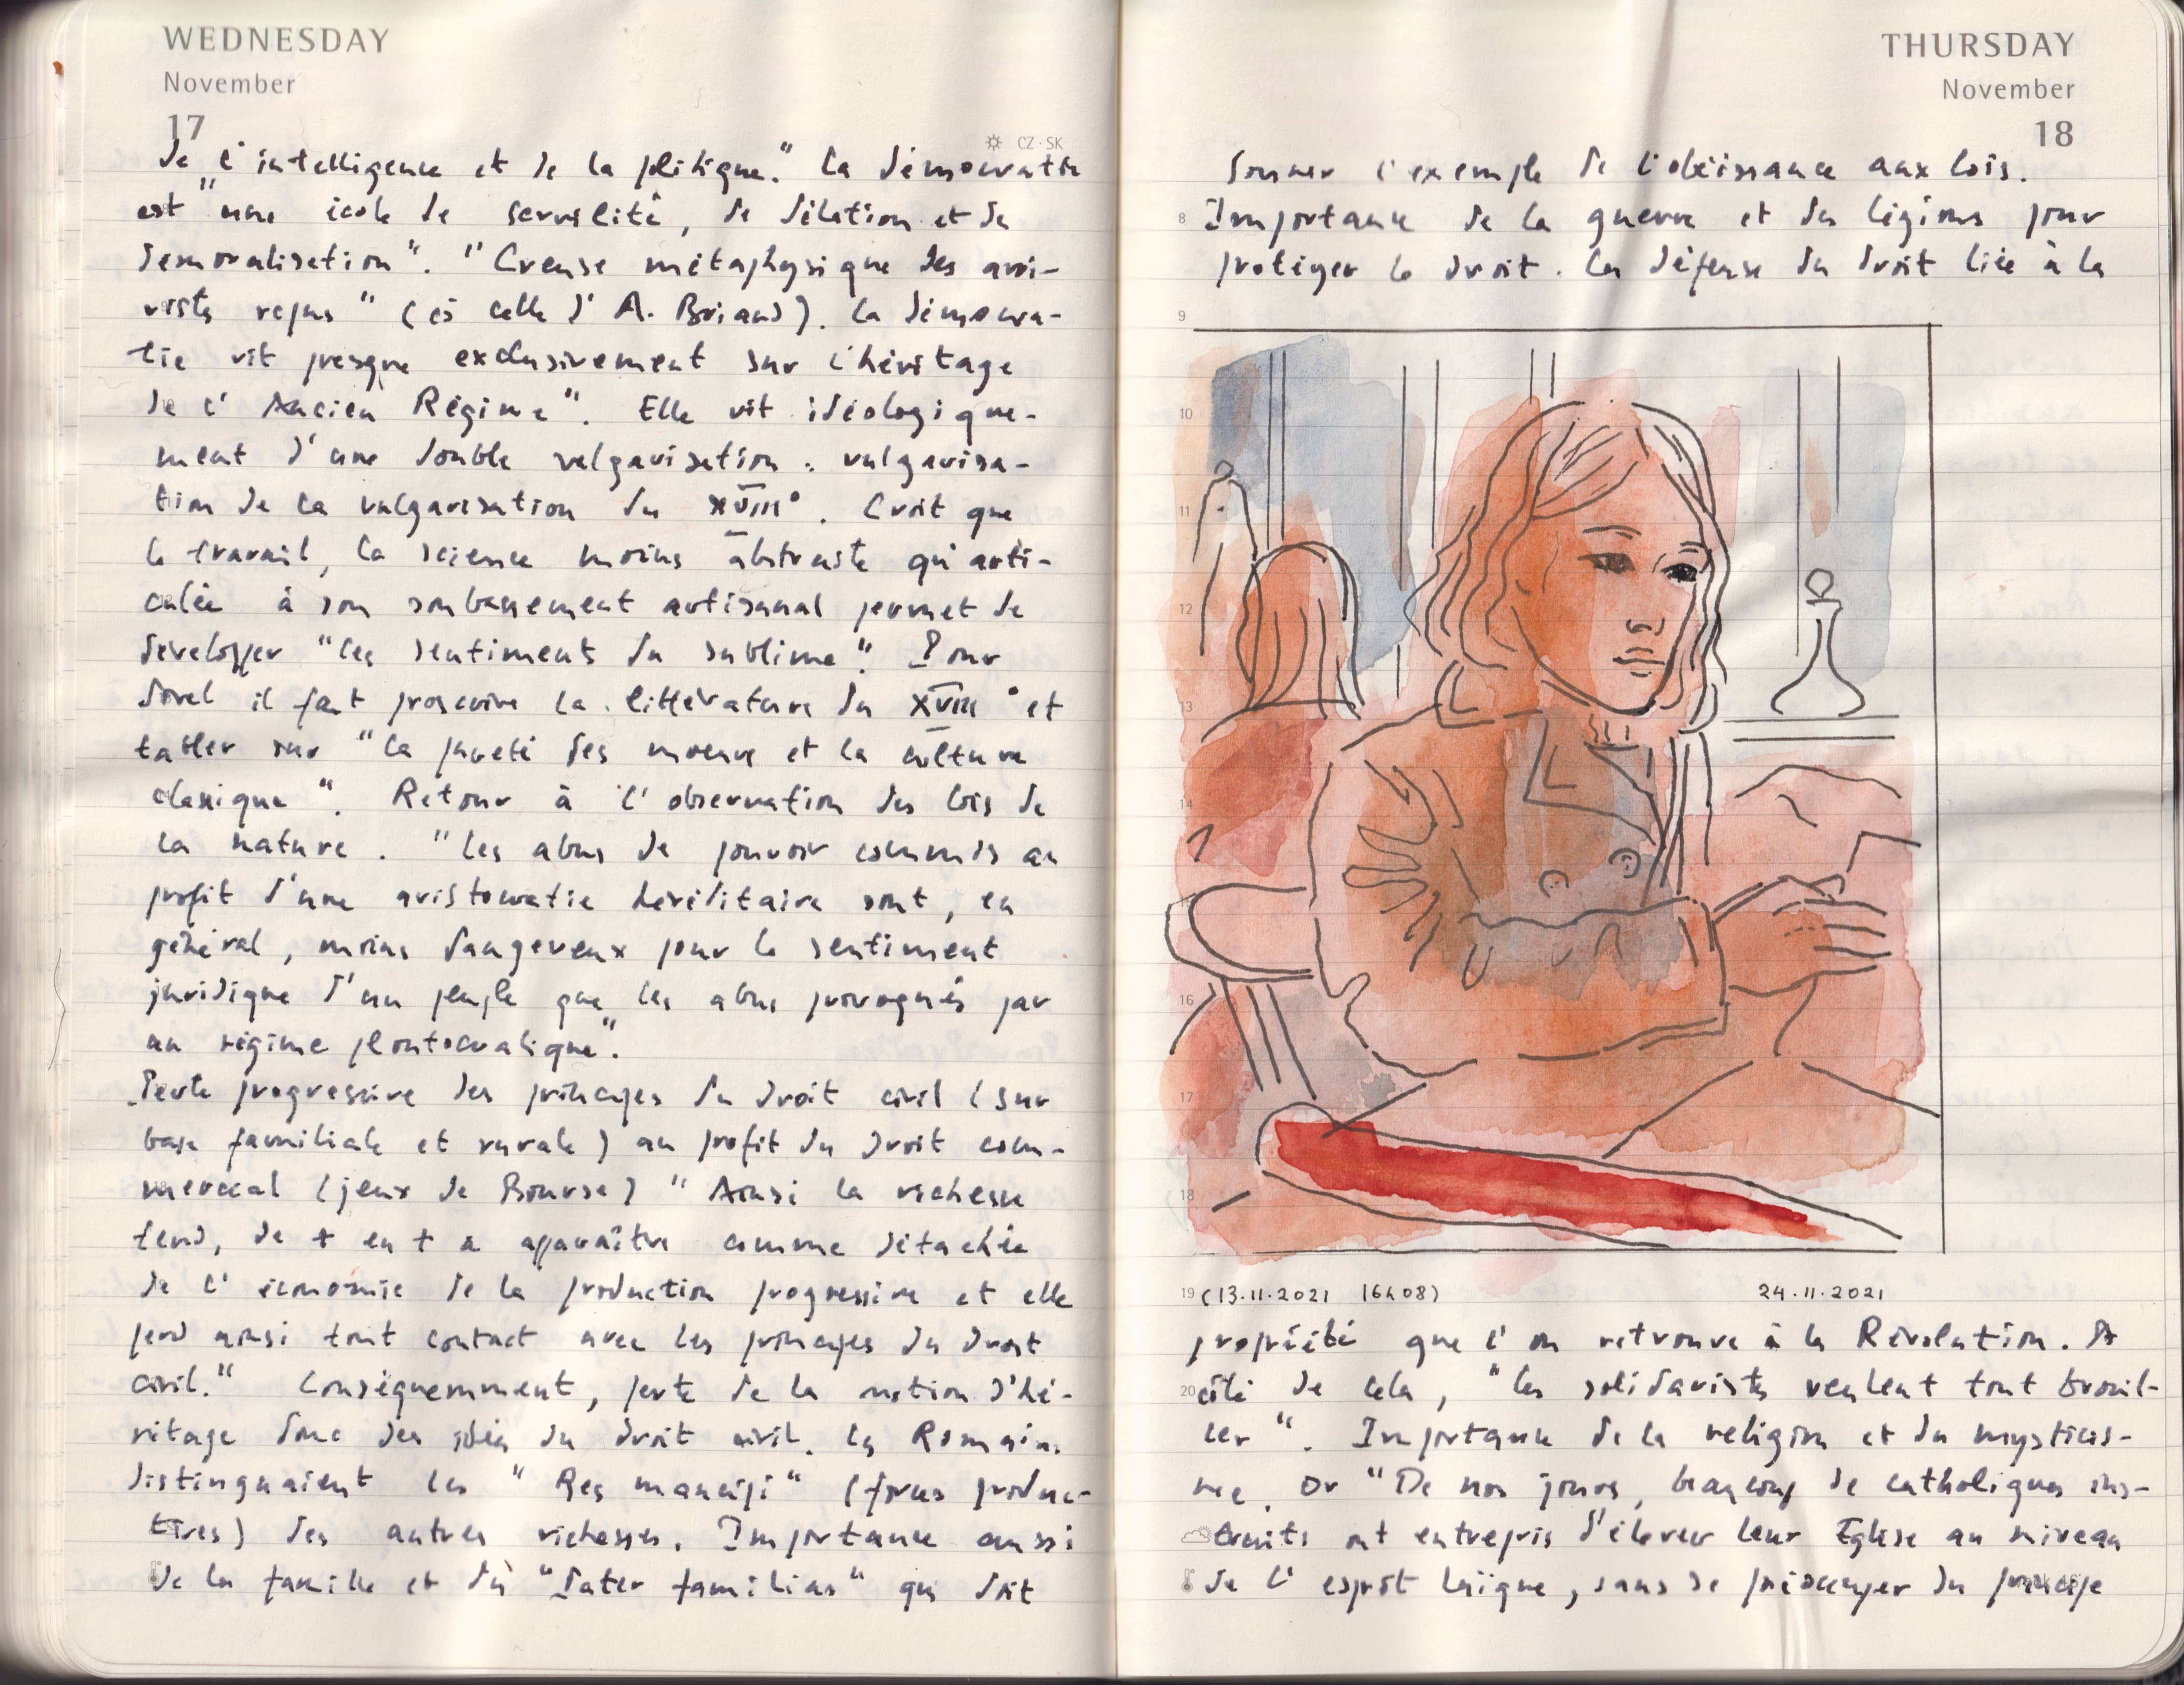 WEDNESDAY
November
17
CZ·SK
de l'intelligence et de la politique." La démocratie
est "une école de servilité, de délation et de
démoralisation". "Creuse métaphysique des arri-
vistes repus" (cf celle d'A. Briand). La démocra-
tie vit presque exclusivement sur l'héritage
de l'Ancien Régime". Elle vit idéologique-
ment d'une double vulgarisation : vulgarisa-
tion de la vulgarisation du XVIII°. Croit que
le travail, la science moins abstraite qu'arti-
culée à son soubassement artisanal permet de
développer "les sentiments du sublime". Pour
Sorel il faut proscrire la littérature du XVIII° et
tabler sur "la pureté des moeurs et la culture
classique". Retour à l'observation des lois de
la nature. "Les abus de pouvoir commis au
profit d'une aristocratie héréditaire sont, en
général, moins dangereux pour le sentiment
juridique d'un peuple que les abus provoqués par
un régime ploutocratique".
Perte progressive des principes du droit civil (sur
base familiale et rurale) au profit du droit com-
mercial (jeux de Bourse) "Ainsi la richesse
tend, de + en + a apparaître comme détachée
de l'économie de la production progressive et elle
perd ainsi tout contact avec les principes du droit
civil." Conséquemment, perte de la notion d'hé-
ritage donc des idées du droit civil. Les Romains
distinguaient les "Res mancipi" (forces produc-
tives) des autres richesses. Importance aussi
de la famille et du "Pater familias" qui doit
THURSDAY
November
18
donner l'exemple de l'obéissance aux lois.
8 Importance de la guerre et des légions pour
protéger le droit. La défense du droit liée à la
9
10
11
12
13
14
16
17
18
19 (13.11.2021 16h08) 24.11.2021
propriété que l'on retrouve à la Révolution. A
20 côté de cela, "les solidaristes veulent tout brouil-
ler". Importance de la religion et du mysticis-
me. Or "De nos jours, beaucoup de catholiques ins-
truits ont entrepris d'élever leur Eglise au niveau
de l'esprit laïque, sans se préoccuper du principe